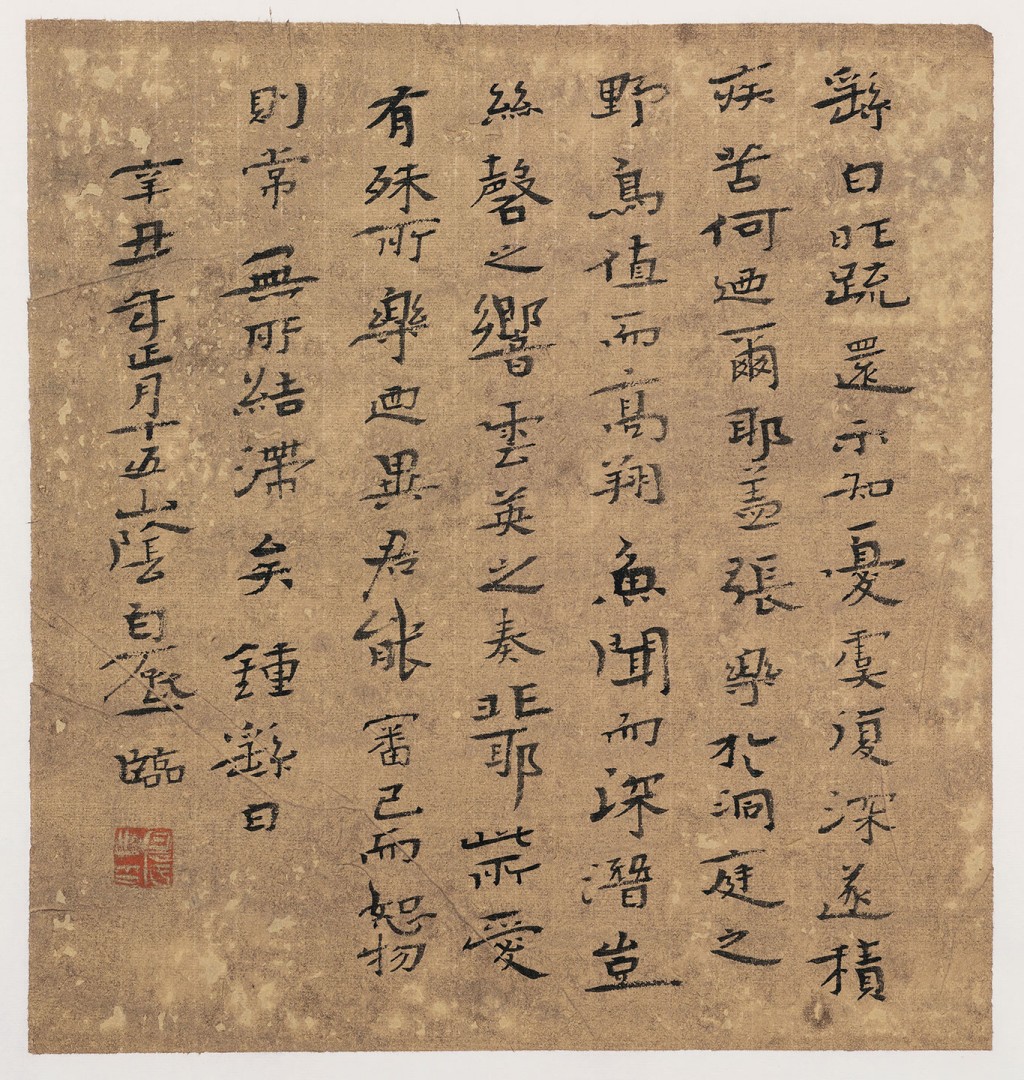 繇白昨疏還示知憂虞復深遂積
疾苦何迺爾耶盖張樂於洞庭之
野鳥值而高翔魚聞而深潛豈
絲磬之響雲英之奏非耶此所愛
有殊所樂迺異君能審己而恕物
則常無所結滯矣鍾繇白
辛丑年正月十五山陰白丞臨